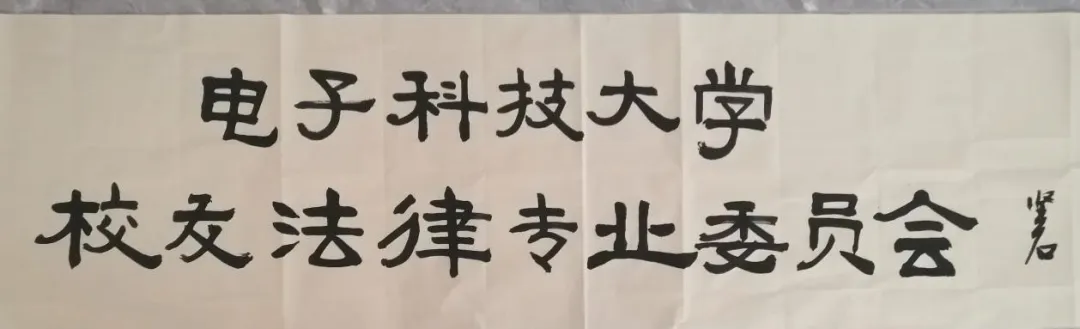 电子科技大学
校友法律专业委员会
坚石